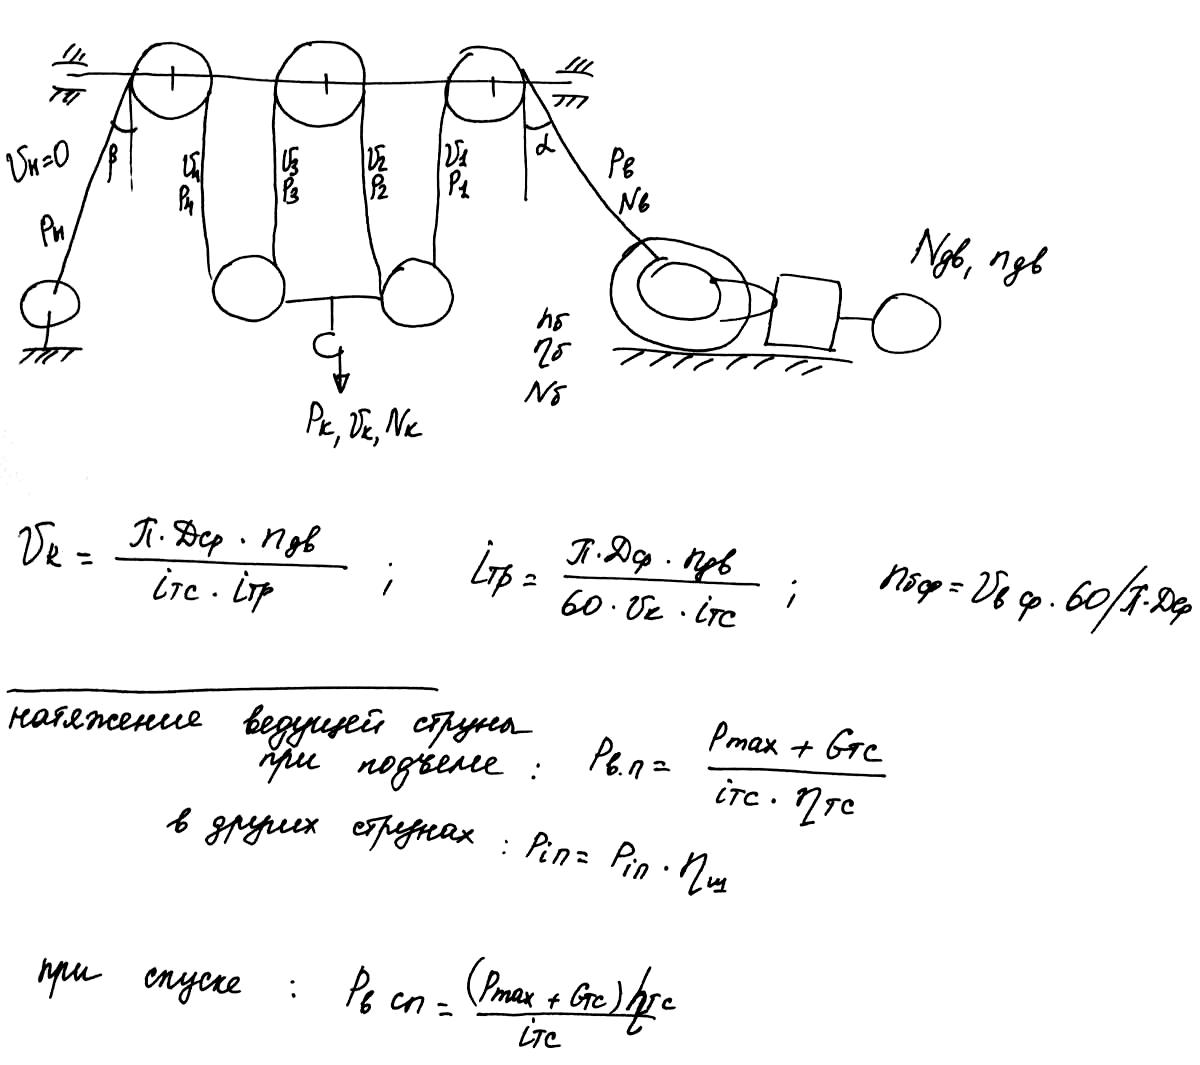 β
α
υн=0
υ4
P4
υ3
P3
υ2
P2
υ1
P1
Pв
Nв
Pн
Nдв, nдв
nб
ηб
Nб
Pк, υк, Nк
υк = π·Dср · nдв / iтс · iтр ; iтр = π·Dср · nдв / 60 · υк · iтс ; nбср = υв ср · 60/π·Dср
натяжение ведущей струны
при подъеме : Pв.п = Pmax + Gтс / iтс · ηтс
в других струнах : Piп = Piп · ηш
при спуске : Pв сп = (Pmax + Gтс) ηтс / iтс